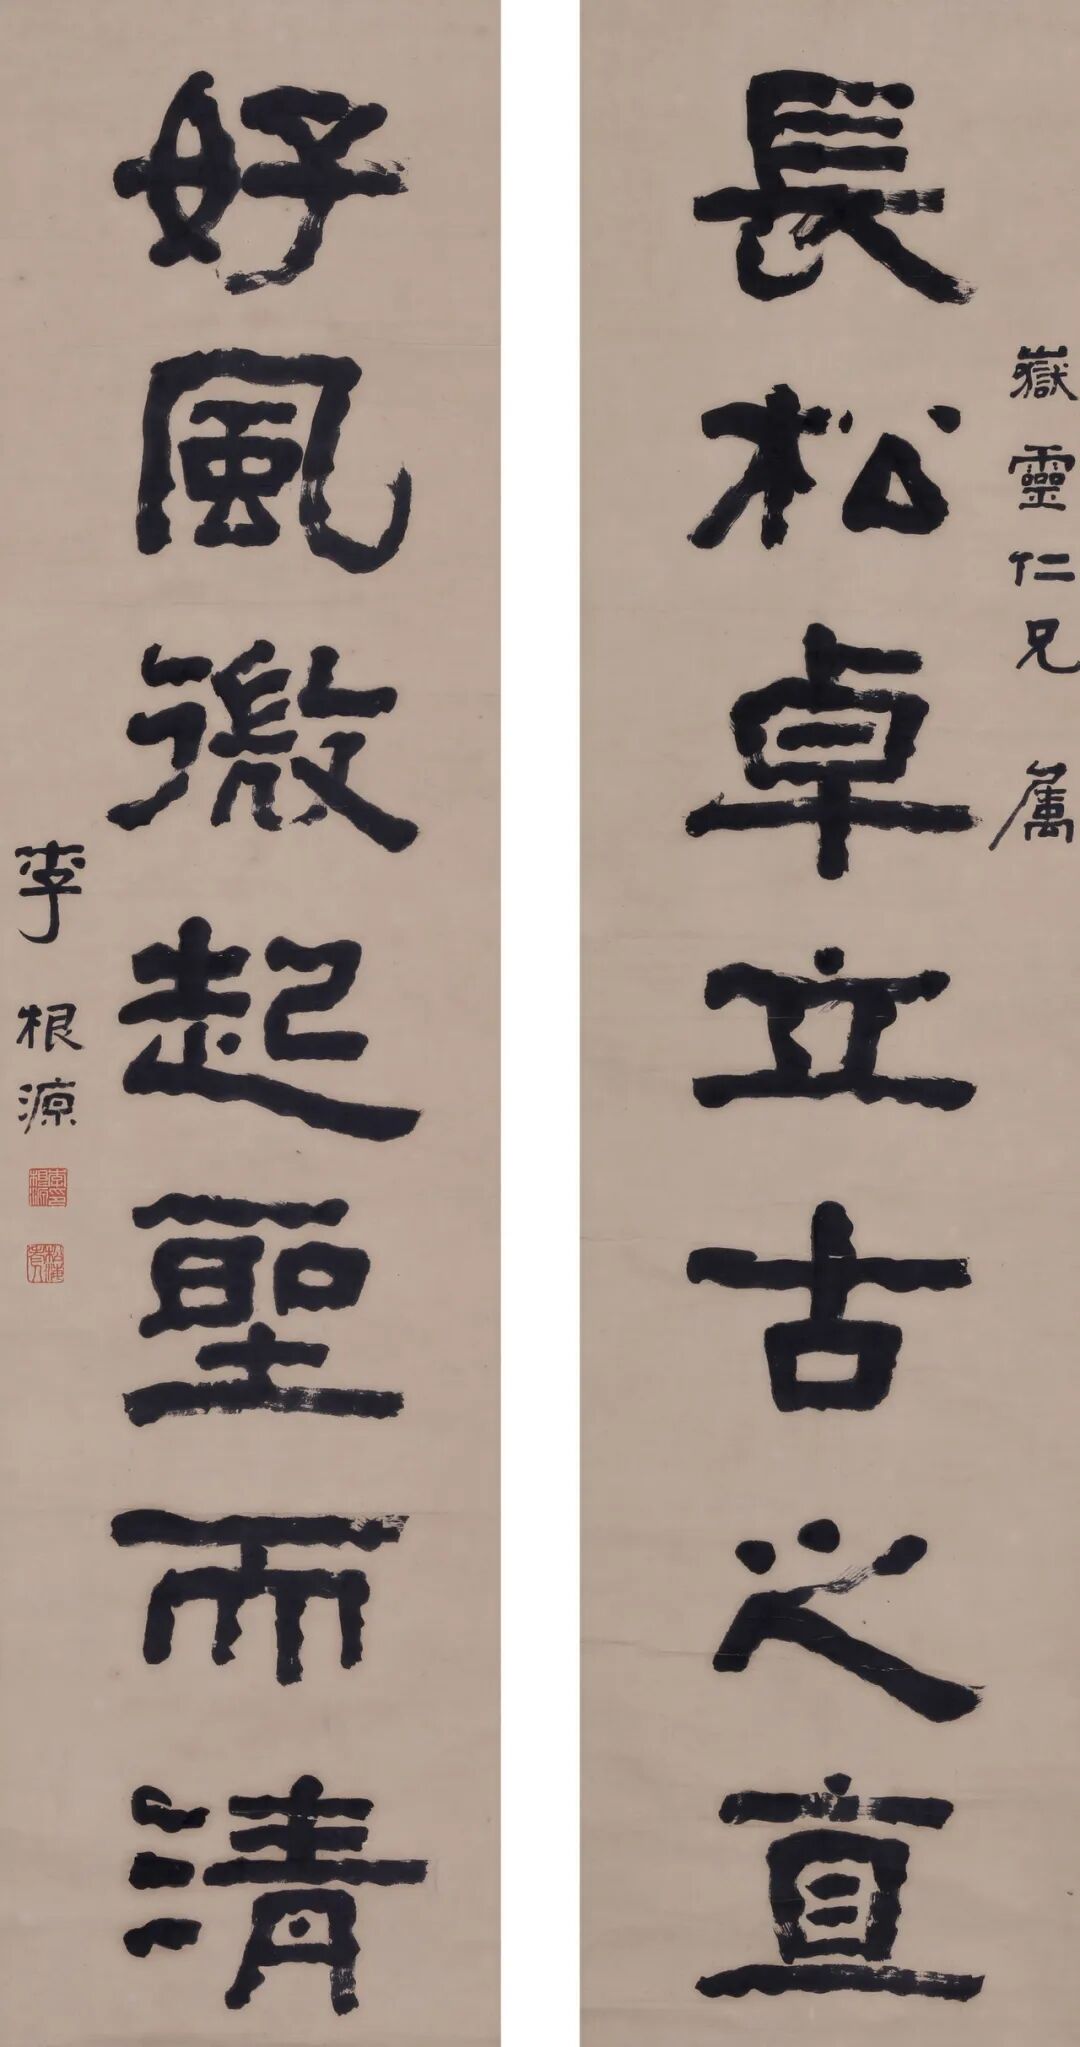 長松卓立古之直
嶽靈仁兄屬
好風徼起聖而清
李根源